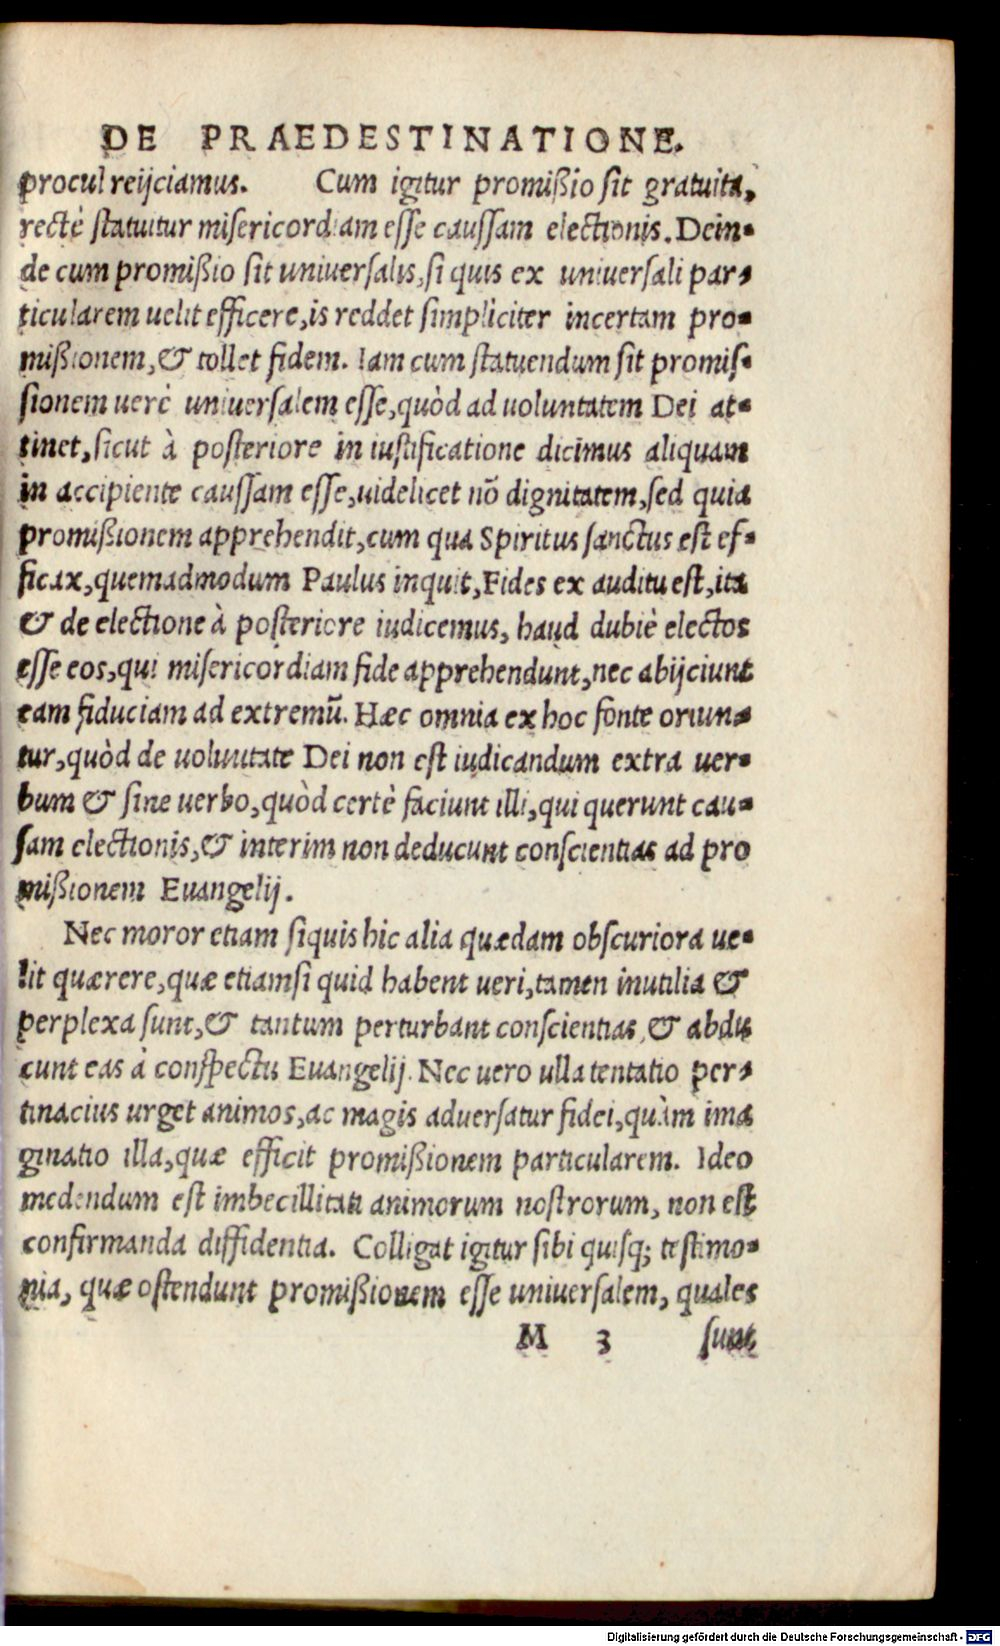 DE PRAEDESTINATIONE.
procul reijciamus. Cum igitur promißio sit gratuita,
rectè statuitur misericordiam esse caussam electionis. Dein-
de cum promißio sit uniuersalis, si quis ex uniuersali par-
ticularem uelit efficere, is reddet simpliciter incertam pro-
mißionem, & tollet fidem. Iam cum statuendum sit promis-
sionem uerè uniuersalem esse, quòd ad uoluntatem Dei at-
tinet, sicut à posteriore in iustificatione dicimus aliquam
in accipiente caussam esse, uidelicet nō dignitatem, sed quia
promißionem apprehendit, cum qua Spiritus sanctus est ef-
ficax, quemadmodum Paulus inquit, Fides ex auditu est, ita
& de electione à posteriore iudicemus, haud dubiè electos
esse eos, qui misericordiam fide apprehendunt, nec abijciunt
eam fiduciam ad extremū. Hæc omnia ex hoc fonte oriun-
tur, quòd de uoluntate Dei non est iudicandum extra uer-
bum & sine uerbo, quòd certè faciunt illi, qui querunt cau-
sam electionis, & interim non deducunt conscientias ad pro
mißionem Euangelij.
Nec moror etiam siquis hic alia quædam obscuriora ue-
lit quærere, quæ etiamsi quid habent ueri, tamen inutilia &
perplexa sunt, & tantum perturbant conscientias, & abdu
cunt eas à conspectu Euangelij. Nec uero ulla tentatio per-
tinacius urget animos, ac magis aduersatur fidei, quàm ima
ginatio illa, quæ efficit promißionem particularem. Ideo
medendum est imbecillitati animorum nostrorum, non est
confirmanda diffidentia. Colligat igitur sibi quisq; testimo-
nia, quæ ostendunt promißionem esse uniuersalem, quales
M 3 sunt
Digitalisierung gefördert durch die Deutsche Forschungsgemeinschaft - DFG